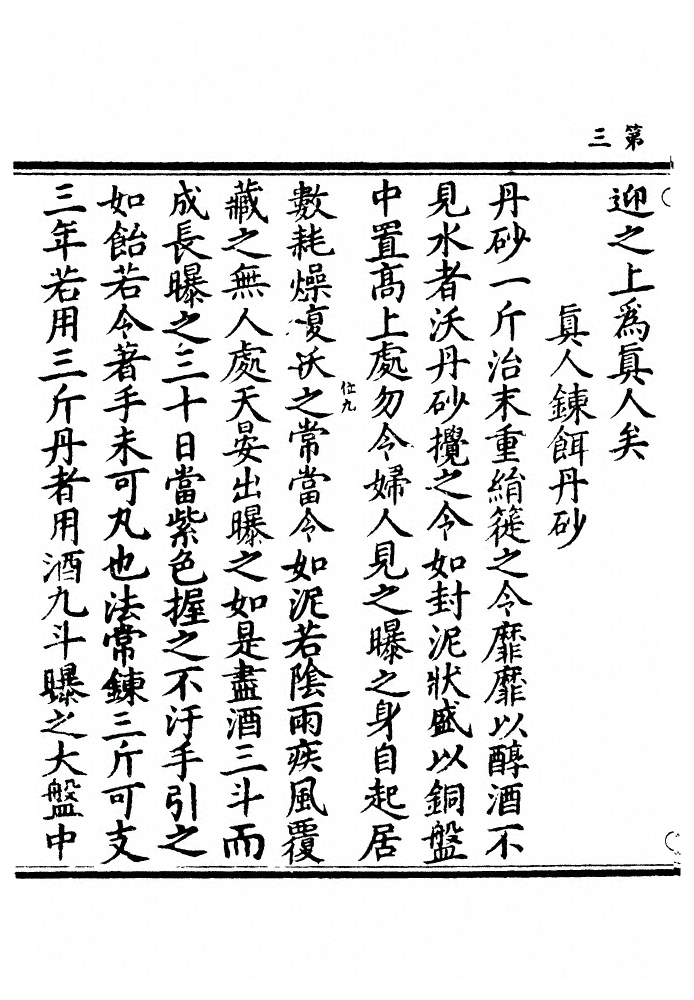 第三
迎之上爲眞人矣
眞人錬餌丹砂
丹砂一斤治末重絹簁之令靡靡以醇酒不
見水者沃丹砂攪之令如封泥狀盛以銅盤
中置高上處勿令婦人見之曝之身自起居
數耗燥復沃之常當令如泥若陰雨疾風覆
藏之無人處天晏出曝之如是盡酒三斗而
成長曝之三十日當紫色握之不汙手引之
如飴若令著手未可丸也法常鍊三斤可支
三年若用三斤丹者用酒九斗曝之大盤中